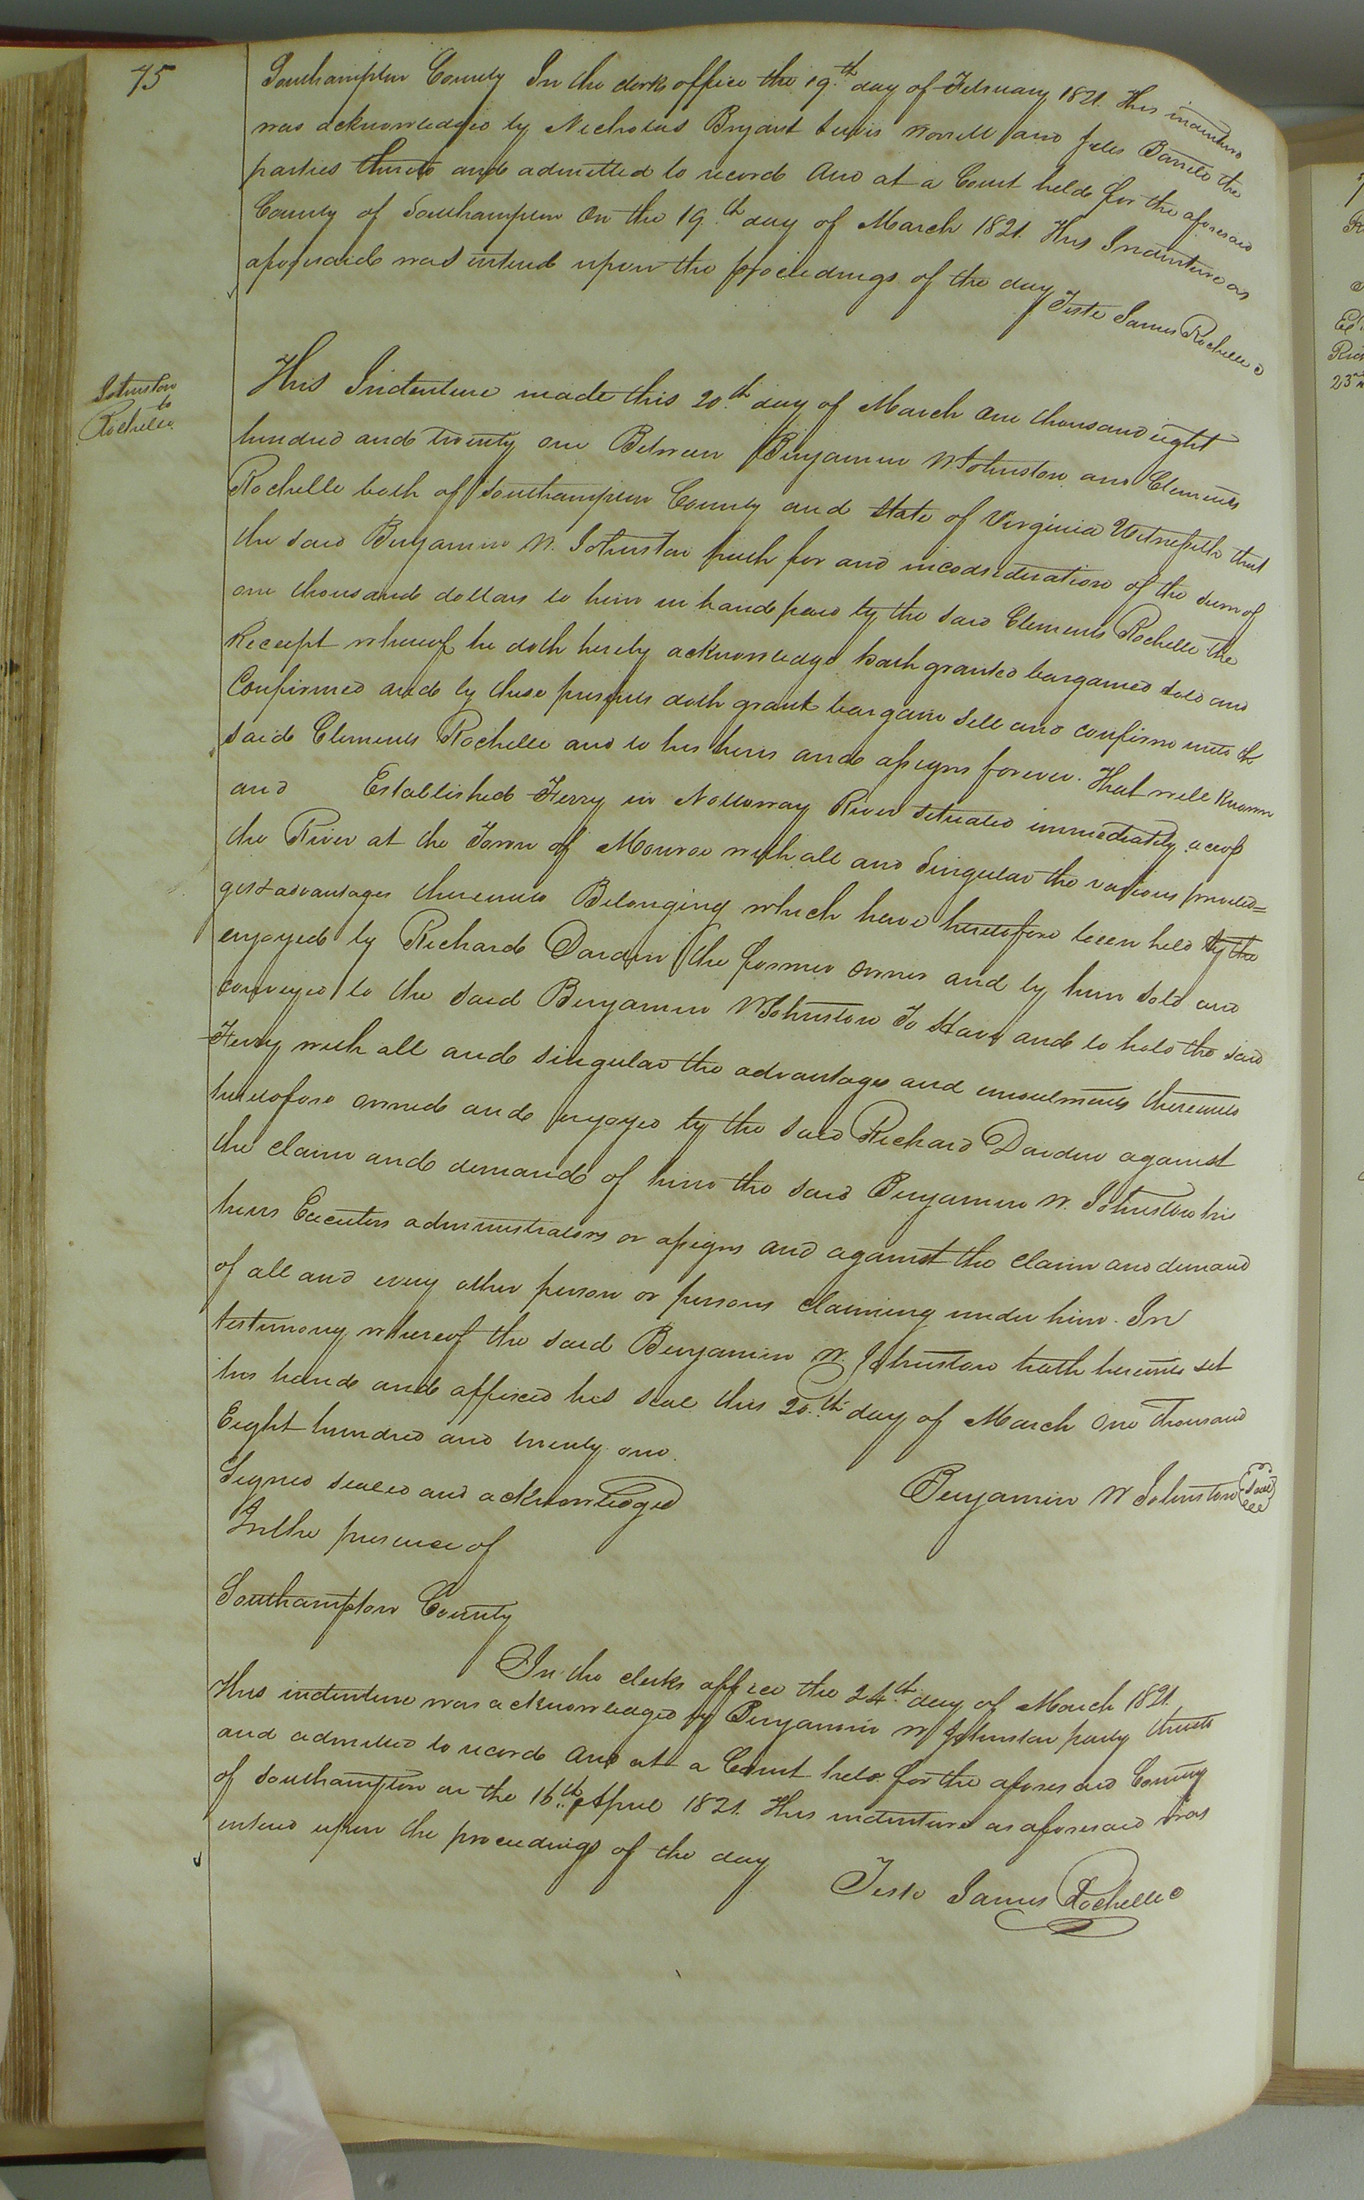 75
Southampton County In the clerks office the 19th day of February 1821. This indenture
was acknowledged by Nicholas Bryant Lewis Worrell and Jiles Barrett the
parties thereto and admitted to record And at a Court held for the aforesaid
County of Southampton On the 19th day of March 1821. This Indenture as
aforesaid was entered upon the proceedings of the day
Teste James Rochelle C
Johnston
to
Rochelle
This Indenture made this 20th day of March One thousand eight
hundred and twenty one Between Benjamin W Johnston and Clements
Rochelle both of Southampton County and State of Virginia Witnesseth that
the said Benjamin W. Johnston hath for and in consideration of the sum of
one thousand dollars to him in hand paid by the said Clements Rochelle the
Receipt whereof he doth hereby acknowledge hath granted bargained sold and
Confirmed and by these presents doth grant bargain sell and confirm unto th
said Clements Rochelle and to his heirs and assigns forever. That well known
and Established Ferry in Nottoway River situated immediately across
the River at the Town of Monroe with all and Singular the various priviled=
ges & advantages thereunto Belonging which have heretofore been held by the
enjoyed by Richard Darden the former owner and by him sold and
conveyed to the said Benjamin W Johnston To Have and to hold the said
Ferry with all and singular the advantages and emoulments thereunto
heretofore owned and enjoyed by the said Richard Darden against
the claim and demand of him the said Benjamin W. Johnston his
heirs Executors administrators or assigns and against the claim and demand
of all and every other person or persons claiming under him. In
testimony whereof the said Benjamin W. Johnston hath hereunto set
his hand and affixed his seal this 20th day of March One thousand
Eight hundred and twenty one.
Signed sealed and acknowledged
Benjamin W Johnston Seal
In the presence of
Southampton County
In the clerks office the 24th day of March 1821.
This indenture was acknowledged by Benjamin W Johnston party thereto
and admitted to record And at a Court held for the aforesaid County
of Southampton on the 16th April 1821. This indenture as aforesaid was
entered upon the proceedings of the day
Teste James Rochelle C